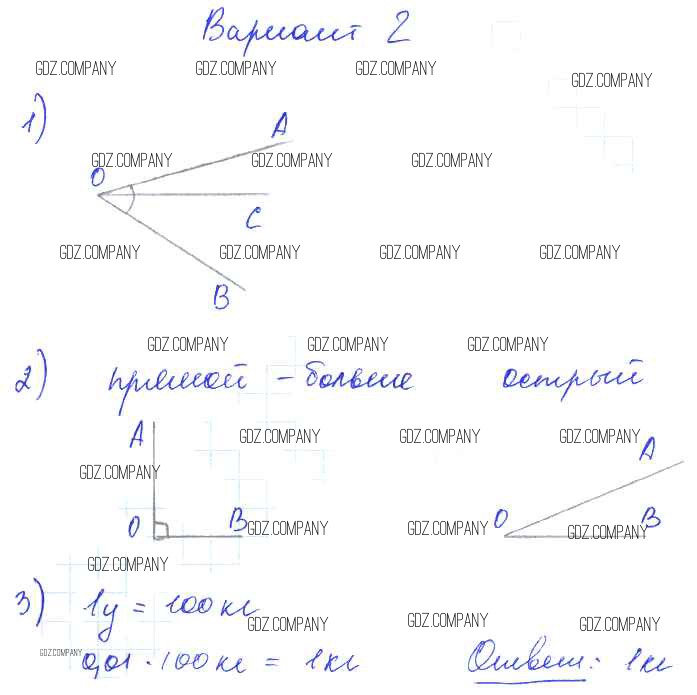 Вариант 2
GDZ.COMPANY GDZ.COMPANY GDZ.COMPANY GDZ.COMPANY
1)
A
GDZ.COMPANY GDZ.COMPANY GDZ.COMPANY
O
C
GDZ.COMPANY GDZ.COMPANY GDZ.COMPANY GDZ.COMPANY
B
GDZ.COMPANY GDZ.COMPANY GDZ.COMPANY
2) прямой - больше острый
A GDZ.COMPANY GDZ.COMPANY GDZ.COMPANY
A
GDZ.COMPANY
O B GDZ.COMPANY GDZ.COMPANY O GDZ.COMPANY B
GDZ.COMPANY
3) 1ц = 100 кг
GDZ.COMPANY GDZ.COMPANY GDZ.COMPANY
GDZ.COMPANY
0,01 · 100 кг = 1 кг Ответ: 1 кг